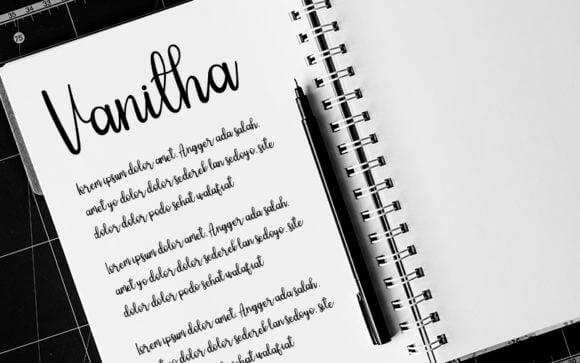 33 34 35
75
Vanitha
lorem ipsum dolor amet. Angger ada salah,
amet yo dolor dolor sederek lan sedoyo. site
dolor dolor podo sehat walafiat
lorem ipsum dolor amet. Angger ada salah.
amet yo dolor dolor sederek lan sedoyo. site
dolor dolor podo sehat walafiat
lorem ipsum dolor amet. Angger ada salah.
amet yo dolor dolor sederek lan sedoyo. site
dolor dolor podo sehat walafiat